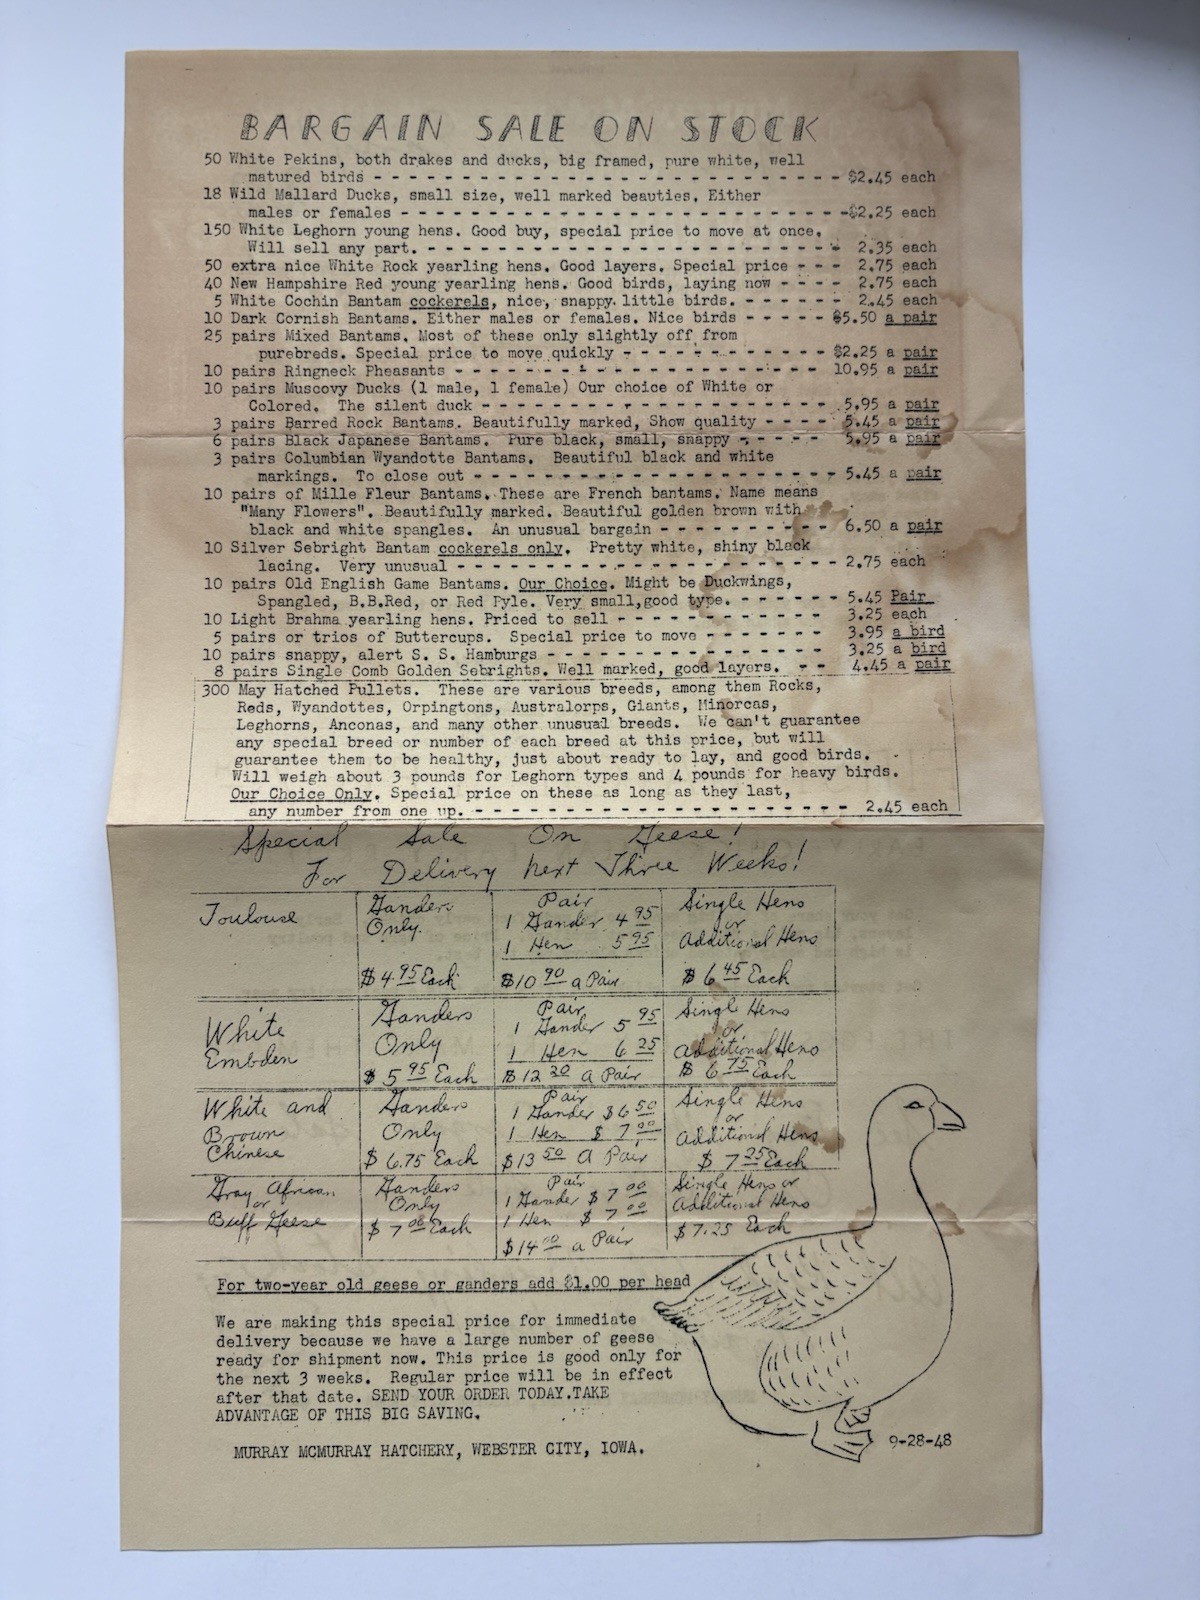 BARGAIN SALE ON STOCK
50 White Pekins, both drakes and ducks, big framed, pure white, well
matured birds - - - - - - - - - - - - - - - - - - - - - - - - - - $2.45 each
18 Wild Mallard Ducks, small size, well marked beauties. Either
males or females - - - - - - - - - - - - - - - - - - - - - - - - -$2.25 each
150 White Leghorn young hens. Good buy, special price to move at once.
Will sell any part. - - - - - - - - - - - - - - - - - - - - - - - 2.35 each
50 extra nice White Rock yearling hens. Good layers. Special price - - - 2.75 each
40 New Hampshire Red young yearling hens. Good birds, laying now - - - - 2.75 each
5 White Cochin Bantam cockerels, nice, snappy little birds. - - - - - - 2.45 each
10 Dark Cornish Bantams. Either males or females. Nice birds - - - - - $5.50 a pair
25 pairs Mixed Bantams. Most of these only slightly off from
purebreds. Special price to move quickly - - - - - - - - - - - - $2.25 a pair
10 pairs Ringneck Pheasants - - - - - - - - - - - - - - - - - - - - - 10.95 a pair
10 pairs Muscovy Ducks (1 male, 1 female) Our choice of White or
Colored. The silent duck - - - - - - - - - - - - - - - - - - - - 5.95 a pair
3 pairs Barred Rock Bantams. Beautifully marked, Show quality - - - - 5.45 a pair
6 pairs Black Japanese Bantams. Pure black, small, snappy - - - - - 5.95 a pair
3 pairs Columbian Wyandotte Bantams. Beautiful black and white
markings. To close out - - - - - - - - - - - - - - - - - - - - - 5.45 a pair
10 pairs of Mille Fleur Bantams. These are French bantams. Name means
"Many Flowers". Beautifully marked. Beautiful golden brown with
black and white spangles. An unusual bargain - - - - - - - - - - 6.50 a pair
10 Silver Sebright Bantam cockerels only. Pretty white, shiny black
lacing. Very unusual - - - - - - - - - - - - - - - - - - - - - - 2.75 each
10 pairs Old English Game Bantams. Our Choice. Might be Duckwings,
Spangled, B.B.Red, or Red Pyle. Very small,good type. - - - - - - 5.45 Pair
10 Light Brahma yearling hens. Priced to sell - - - - - - - - - - - - 3.25 each
5 pairs or trios of Buttercups. Special price to move - - - - - - - 3.95 a bird
10 pairs snappy, alert S. S. Hamburgs - - - - - - - - - - - - - - - - 3.25 a bird
8 pairs Single Comb Golden Sebrights. Well marked, good layers. - - 4.45 a pair
300 May Hatched Pullets. These are various breeds, among them Rocks,
Reds, Wyandottes, Orpingtons, Australorps, Giants, Minorcas,
Leghorns, Anconas, and many other unusual breeds. We can't guarantee
any special breed or number of each breed at this price, but will
guarantee them to be healthy, just about ready to lay, and good birds.
Will weigh about 3 pounds for Leghorn types and 4 pounds for heavy birds.
Our Choice Only. Special price on these as long as they last,
any number from one up. - - - - - - - - - - - - - - - - - - - - - 2.45 each
Special Sale On Geese!
For Delivery next Three Weeks!
Toulouse
Ganders
Only.
$4.95 Each
Pair
1 Gander 4 95
1 Hen 5 95
$10 90 a Pair
Single Hens
or
Additional Hens
$ 6 45 Each
White
Embden
Ganders
Only
$ 5 95 Each
Pair
1 Gander 5 95
1 Hen 6 25
$12 20 a Pair
Single Hens
or
Additional Hens
$ 6 75 Each
White and
Brown
Chinese
Ganders
Only
$ 6.75 Each
Pair
1 Gander $6 50
1 Hen $ 7 00
$13 50 a Pair
Single Hens
or
Additional Hens
$ 7 25 Each
Gray African
or
Buff Geese
Ganders
Only
$ 7 00 Each
Pair
1 Gander $ 7 00
1 Hen $ 7 00
$14 00 a Pair
Single Hens or
Additional Hens
$7.25 Each
For two-year old geese or ganders add $1.00 per head
We are making this special price for immediate
delivery because we have a large number of geese
ready for shipment now. This price is good only for
the next 3 weeks. Regular price will be in effect
after that date. SEND YOUR ORDER TODAY.TAKE
ADVANTAGE OF THIS BIG SAVING.
MURRAY MCMURRAY HATCHERY, WEBSTER CITY, IOWA.
9-28-48